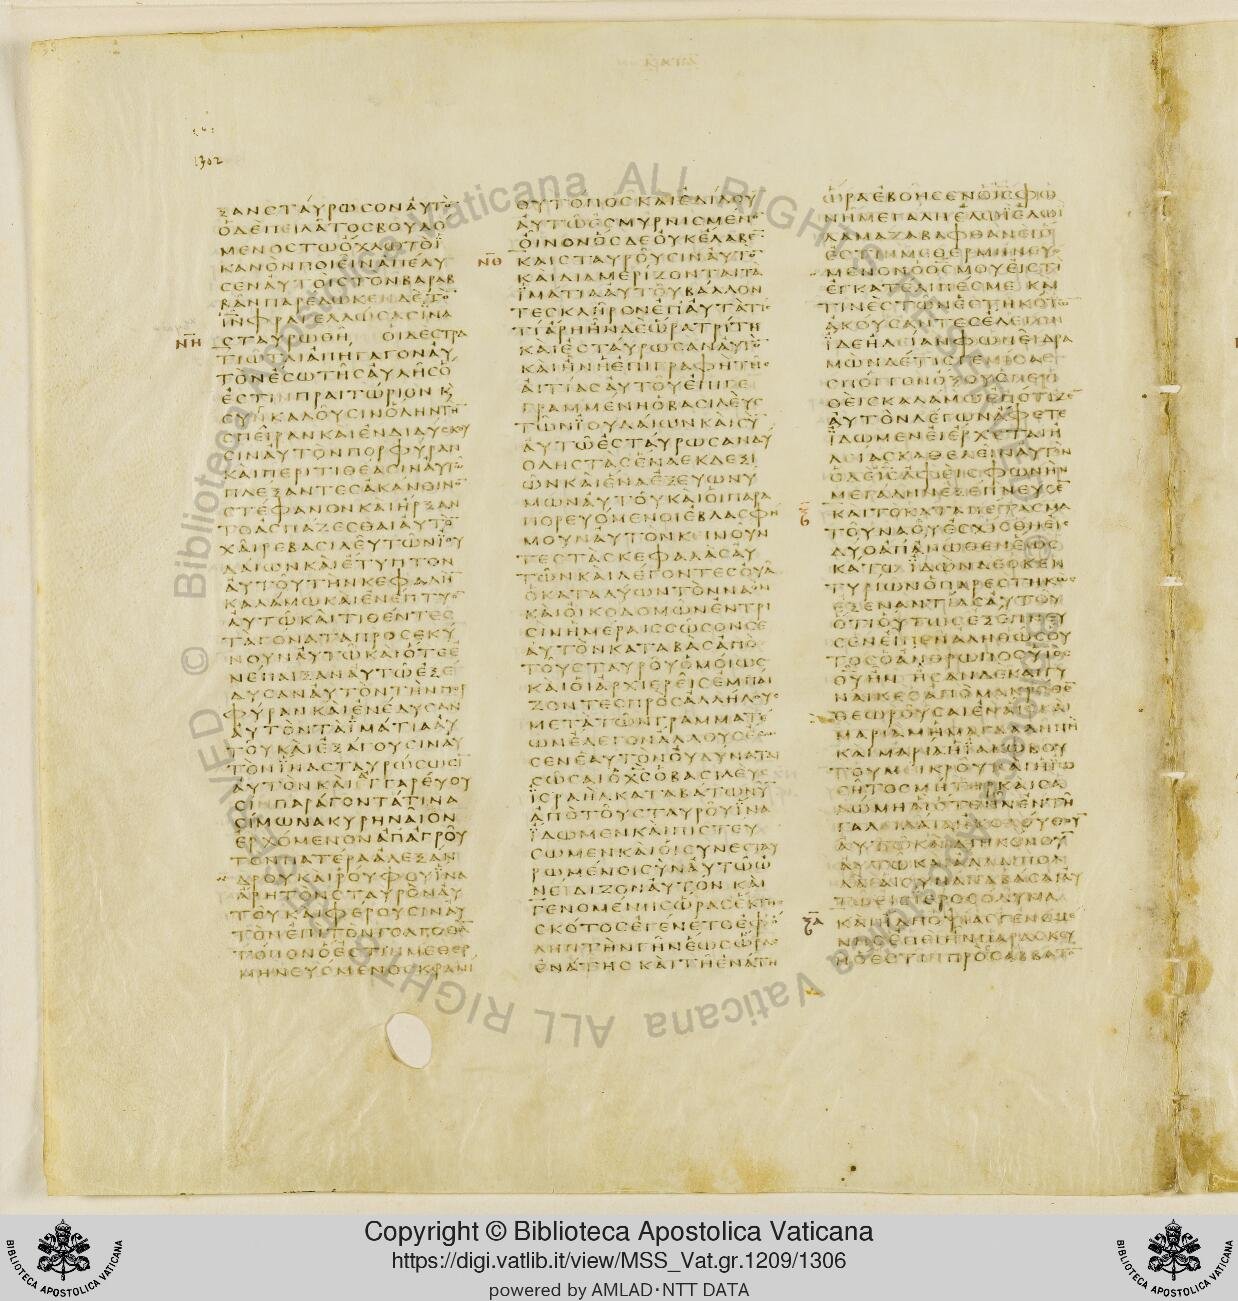 1302
ΞΑΝ ΣΤΑΥΡΩΣΟΝ ΑΥΤΟ̅
Ο ΔΕ ΠΕΙΛΑΤΟΣ ΒΟΥΛΟ
ΜΕΝΟΣ ΤΩ ΟΧΛΩ ΤΟ Ϊ
ΚΑΝΟΝ ΠΟΙΕΙΝ ΑΠΕΛΥ
ΣΕΝ ΑΥΤΟΙΣ ΤΟΝ ΒΑΡΑΒ
ΒΑΝ ΠΑΡΕΔΩΚΕΝ ΔΕ ΤΟ̅
Ι̅Ν̅ ΦΡΑΓΕΛΛΩΣΑΣ ΙΝΑ
ΝΗ ΣΤΑΥΡΩΘΗ ΟΙ ΔΕ ΣΤΡΑ
ΤΙΩΤΑΙ ΑΠΗΓΑΓΟΝ ΑΥ
ΤΟΝ ΕΣΩ ΤΗΣ ΑΥΛΗΣ Ο
ΕΣΤΙΝ ΠΡΑΙΤΩΡΙΟΝ Κ
ΣΥΝΚΑΛΟΥΣΙΝ ΟΛΗΝ ΤΗ̅
ΣΠΕΙΡΑΝ ΚΑΙ ΕΝΔΙΔΥΣΚΟΥ
ΣΙΝ ΑΥΤΟΝ ΠΟΡΦΥΡΑΝ
ΚΑΙ ΠΕΡΙΤΙΘΕΑΣΙΝ ΑΥΤΩ
ΠΛΕΞΑΝΤΕΣ ΑΚΑΝΘΙΝΟ̅
ΣΤΕΦΑΝΟΝ ΚΑΙ ΗΡΞΑΝ
ΤΟ ΑΣΠΑΖΕΣΘΑΙ ΑΥΤΟ̅
ΧΑΙΡΕ ΒΑΣΙΛΕΥ ΤΩΝ ΪΟΥ
ΔΑΙΩΝ ΚΑΙ ΕΤΥΠΤΟΝ
ΑΥΤΟΥ ΤΗΝ ΚΕΦΑΛΗ̅
ΚΑΛΑΜΩ ΚΑΙ ΕΝΕΠΤΥΟ̅
ΑΥΤΩ ΚΑΙ ΤΙΘΕΝΤΕΣ
ΤΑ ΓΟΝΑΤΑ ΠΡΟΣΕΚΥ
ΝΟΥΝ ΑΥΤΩ ΚΑΙ ΟΤΕ Ε
ΝΕΠΑΙΞΑΝ ΑΥΤΩ ΕΞΕ
ΔΥΣΑΝ ΑΥΤΟΝ ΤΗΝ ΠΟΡ
ΦΥΡΑΝ ΚΑΙ ΕΝΕΔΥΣΑΝ
ΑΥΤΟΝ ΤΑ ΪΜΑΤΙΑ ΑΥ
ΤΟΥ ΚΑΙ ΕΞΑΓΟΥΣΙΝ ΑΥ
ΤΟΝ ΪΝΑ ΣΤΑΥΡΩΣΩΣΙ
ΑΥΤΟΝ ΚΑΙ ΑΓΓΑΡΕΥΟΥ
ΣΙΝ ΠΑΡΑΓΟΝΤΑ ΤΙΝΑ
ΣΙΜΩΝΑ ΚΥΡΗΝΑΙΟΝ
ΕΡΧΟΜΕΝΟΝ ΑΠ ΑΓΡΟΥ
ΤΟΝ ΠΑΤΕΡΑ ΑΛΕΞΑΝ
ΔΡΟΥ ΚΑΙ ΡΟΥΦΟΥ ΪΝΑ
ΑΡΗ ΤΟΝ ΣΤΑΥΡΟΝ ΑΥ
ΤΟΥ ΚΑΙ ΦΕΡΟΥΣΙΝ ΑΥ
ΤΟΝ ΕΠΙ ΤΟΝ ΓΟΛΓΟΘΑ
ΤΟΠΟΝ Ο ΕΣΤΙΝ ΜΕΘΕΡ
ΜΗΝΕΥΟΜΕΝΟΣ ΚΡΑΝΙ
ΟΥ ΤΟΠΟΣ ΚΑΙ ΕΔΙΔΟΥ̅
ΑΥΤΩ ΕΣΜΥΡΝΙΣΜΕΝΟ̅
ΟΙΝΟΝ ΟΣ ΔΕ ΟΥΚ ΕΛΑΒΕ̅
ΝΘ ΚΑΙ ΣΤΑΥΡΟΥΣΙΝ ΑΥΤΟ̅
ΚΑΙ ΔΙΑΜΕΡΙΖΟΝΤΑΙ ΤΑ
ΪΜΑΤΙΑ ΑΥΤΟΥ ΒΑΛΛΟΝ
ΤΕΣ ΚΛΗΡΟΝ ΕΠ ΑΥΤΑ ΤΙΣ
ΤΙ ΑΡΗ ΗΝ ΔΕ ΩΡΑ ΤΡΙΤΗ
ΚΑΙ ΕΣΤΑΥΡΩΣΑΝ ΑΥΤΟ̅
ΚΑΙ ΗΝ Η ΕΠΙΓΡΑΦΗ ΤΗΣ
ΑΙΤΙΑΣ ΑΥΤΟΥ ΕΠΙΓΕ
ΓΡΑΜΜΕΝΗ Ο ΒΑΣΙΛΕΥΣ
ΤΩΝ ΪΟΥΔΑΙΩΝ ΚΑΙ ΣΥ̅
ΑΥΤΩ ΕΣΤΑΥΡΩΣΑΝ ΔΥ
Ο ΛΗΣΤΑΣ ΕΝΑ ΕΚ ΔΕΞΙ
ΩΝ ΚΑΙ ΕΝΑ ΕΞ ΕΥΩΝΥ
ΜΩΝ ΑΥΤΟΥ ΚΑΙ ΟΙ ΠΑΡΑ
ΠΟΡΕΥΟΜΕΝΟΙ ΕΒΛΑΣΦΗ
ΜΟΥΝ ΑΥΤΟΝ ΚΕΙΝΟΥΝ
ΤΕΣ ΤΑΣ ΚΕΦΑΛΑΣ ΑΥ
ΤΩΝ ΚΑΙ ΛΕΓΟΝΤΕΣ ΟΥΑ
Ο ΚΑΤΑΛΥΩΝ ΤΟΝ ΝΑΟΝ
ΚΑΙ ΟΙΚΟΔΟΜΩΝ ΕΝ ΤΡΙ
ΣΙΝ ΗΜΕΡΑΙΣ ΣΩΣΟΝ ΣΕ
ΑΥΤΟΝ ΚΑΤΑΒΑΣ ΑΠΟ
ΤΟΥ ΣΤΑΥΡΟΥ ΟΜΟΙΩΣ
ΚΑΙ ΟΙ ΑΡΧΙΕΡΕΙΣ ΕΜΠΑΙ
ΖΟΝΤΕΣ ΠΡΟΣ ΑΛΛΗΛΟΥΣ
ΜΕΤΑ ΤΩΝ ΓΡΑΜΜΑΤΕ
ΩΝ ΕΛΕΓΟΝ ΑΛΛΟΥΣ ΕΣΩ
ΣΕΝ ΕΑΥΤΟΝ ΟΥ ΔΥΝΑΤΑΙ
ΣΩΣΑΙ Ο Χ̅Σ̅ Ο ΒΑΣΙΛΕΥΣ
ΪΣΡΑΗΛ ΚΑΤΑΒΑΤΩ ΝΥ̅
ΑΠΟ ΤΟΥ ΣΤΑΥΡΟΥ ΪΝΑ
ΪΔΩΜΕΝ ΚΑΙ ΠΙΣΤΕΥ
ΣΩΜΕΝ ΚΑΙ ΟΙ ΣΥΝΕΣΤΑΥ
ΡΩΜΕΝΟΙ ΣΥΝ ΑΥΤΩ Ω
ΝΕΙΔΙΖΟΝ ΑΥΤΟΝ ΚΑΙ
ΓΕΝΟΜΕΝΗΣ ΩΡΑΣ ΕΚΤΗΣ
ΣΚΟΤΟΣ ΕΓΕΝΕΤΟ ΕΦ Ο
ΛΗΝ ΤΗΝ ΓΗΝ ΕΩΣ ΩΡΑΣ
ΕΝΑΤΗΣ ΚΑΙ ΤΗ ΕΝΑΤΗ
ΩΡΑ ΕΒΟΗΣΕΝ Ο Ι̅Σ̅ ΦΩ
ΝΗ ΜΕΓΑΛΗ ΕΛΩΪ ΕΛΩΪ
ΛΑΜΑ ΖΑΒΑΦΘΑΝΕΙ Ο
ΕΣΤΙΝ ΜΕΘΕΡΜΗΝΕΥΟ
ΜΕΝΟΝ Ο Θ̅Σ̅ ΜΟΥ ΕΙΣ ΤΙ
ΕΓΚΑΤΕΛΙΠΕΣ ΜΕ ΚΑΙ
ΤΙΝΕΣ ΤΩΝ ΕΣΤΗΚΟΤΩ̅
ΑΚΟΥΣΑΝΤΕΣ ΕΛΕΓΟΝ
ΪΔΕ ΗΛΕΙΑΝ ΦΩΝΕΙ ΔΡΑ
ΜΩΝ ΔΕ ΤΙΣ ΓΕΜΙΣΑΣ
ΣΠΟΓΓΟΝ ΟΞΟΥΣ ΠΕΡΙ
ΘΕΙΣ ΚΑΛΑΜΩ ΕΠΟΤΙΖΕ̅
ΑΥΤΟΝ ΛΕΓΩΝ ΑΦΕΤΕ
ΪΔΩΜΕΝ ΕΙ ΕΡΧΕΤΑΙ Η
ΛΕΙΑΣ ΚΑΘΕΛΕΙΝ ΑΥΤΟΝ
Ο ΔΕ Ι̅Σ̅ ΑΦΕΙΣ ΦΩΝΗΝ
ΜΕΓΑΛΗΝ ΕΞΕΠΝΕΥΣΕ̅
Ξ ΚΑΙ ΤΟ ΚΑΤΑΠΕΤΑΣΜΑ
ΤΟΥ ΝΑΟΥ ΕΣΧΙΣΘΗ ΕΙΣ
ΔΥΟ ΑΠ ΑΝΩΘΕΝ ΕΩΣ
ΚΑΤΩ ΪΔΩΝ ΔΕ Ο ΚΕΝ
ΤΥΡΙΩΝ Ο ΠΑΡΕΣΤΗΚΩΣ
ΕΞ ΕΝΑΝΤΙΑΣ ΑΥΤΟΥ
ΟΤΙ ΟΥΤΩΣ ΕΞΕΠΝΕΥ
ΣΕΝ ΕΙΠΕΝ ΑΛΗΘΩΣ ΟΥ
ΤΟΣ Ο ΑΝΘΡΩΠΟΣ ΥΙΟΣ
ΘΥ ΗΝ ΗΣΑΝ ΔΕ ΚΑΙ ΓΥ
ΝΑΙΚΕΣ ΑΠΟ ΜΑΚΡΟΘΕ̅
ΘΕΩΡΟΥΣΑΙ ΕΝ ΑΙΣ ΚΑΙ
ΜΑΡΙΑΜ Η ΜΑΓΔΑΛΗΝΗ
ΚΑΙ ΜΑΡΙΑ Η ΪΑΚΩΒΟΥ
ΤΟΥ ΜΕΙΚΡΟΥ ΚΑΙ Η ΪΩ
ΣΗΤΟΣ ΜΗΤΗΡ ΚΑΙ ΣΑ
ΛΩΜΗ ΑΙ ΟΤΕ ΗΝ ΕΝ ΤΗ
ΓΑΛΙΛΑΙΑ ΗΚΟΛΟΥΘΟΥ̅
ΑΥΤΩ ΚΑΙ ΔΙΗΚΟΝΟΥ̅
ΑΥΤΩ ΚΑΙ ΑΛΛΑΙ ΠΟΛ
ΛΑΙ ΑΙ ΣΥΝΑΝΑΒΑΣΑΙ ΑΥ
ΤΩ ΕΙΣ ΙΕΡΟΣΟΛΥΜΑ
ΞΑ ΚΑΙ ΗΔΗ ΟΨΙΑΣ ΓΕΝΟΜΕ
ΝΗΣ ΕΠΕΙ ΗΝ ΠΑΡΑΣΚΕΥ
Η Ο ΕΣΤΙΝ ΠΡΟΣΑΒΒΑΤΟ̅
© Biblioteca Apostolica Vaticana ALL RIGHTS RESERVED
© Biblioteca Apostolica Vaticana ALL RIGHTS RESERVED
BIBLIOTECA APOSTOLICA VATICANA
Copyright © Biblioteca Apostolica Vaticana
https://digi.vatlib.it/view/MSS_Vat.gr.1209/1306
powered by AMLAD·NTT DATA
BIBLIOTECA APOSTOLICA VATICANA